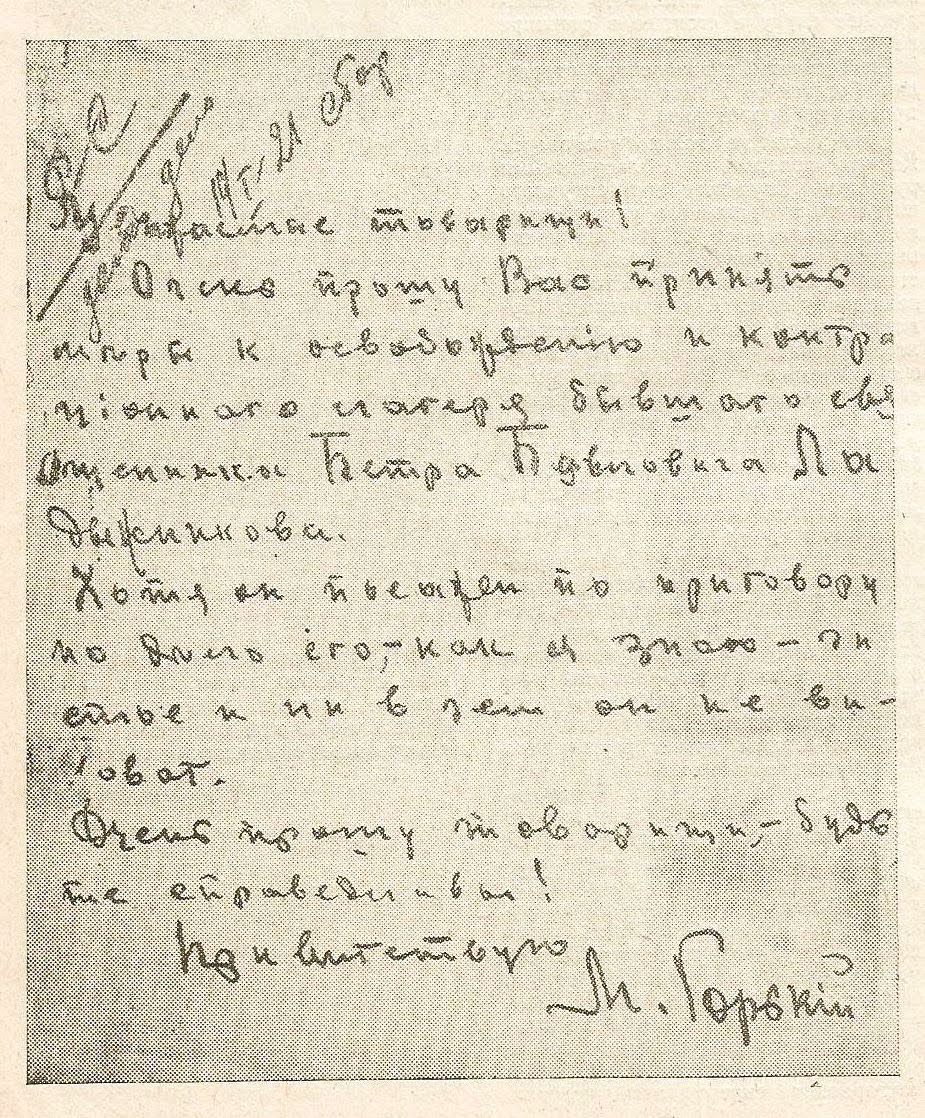 товарищи!
Очень прошу Вас принять
мѣры к освобождению и контра
ціонного лагеря бывшаго свя
щенника Петра Павловича Ла
дыжникова.
Хотя он посажен по приговору
но дѣло его,-как я знаю - чи
стое и ни в чем он не ви-
новат.
Очень прошу товарищи,- будь
те справедливы!
Привѣтствую
М. Горькій